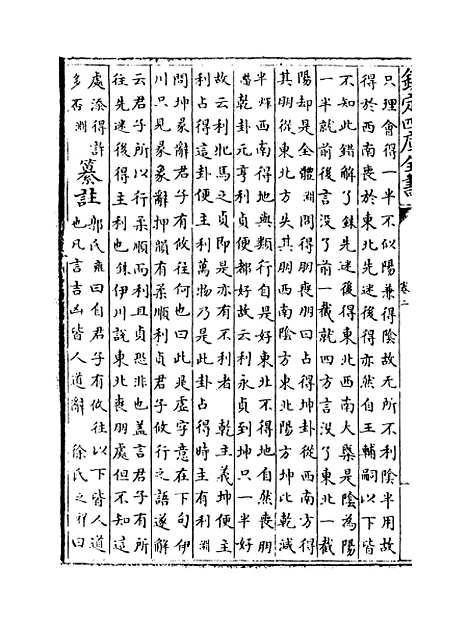 欽定四庫全書
卷二
只理會得一半不似陽兼得陰故無所不利陰半用故
得於西南喪於東北先迷後得亦然自王輔嗣以下皆
不知此錯解了錄先迷後得東北西南大槩是陰為陽
一半就前後言沒了前一截就四方言沒了東北一截
陽却是全體淵問得朋曰占得坤卦從西南方得
其朋從東北方失其朋西南陰方東北陽方坤比乾減
半炸西南得地與類行自是好東北不得地自然喪朋
乾卦元亨利貞便都好故云利永貞到坤只一半好
故云利牝馬之貞即是亦有不利者 乾主義坤便主
利占得這卦便主利萬物乃是此卦占得時主有利淵
問坤彖辭君子有攸往何也曰此是虛字意在下句伊
川只見彖象辭押韻有柔順利貞君子攸行之語遂解
云君子所以行柔順而利且貞恐非也蓋言君子有所
往先迷後得主利也錄伊川說東北喪朋處但不知這
處添得許多否淵
纂註 鄭氏雍曰自君子有攸往以下皆人道也凡言吉凶皆人道辭 徐氏之祥曰